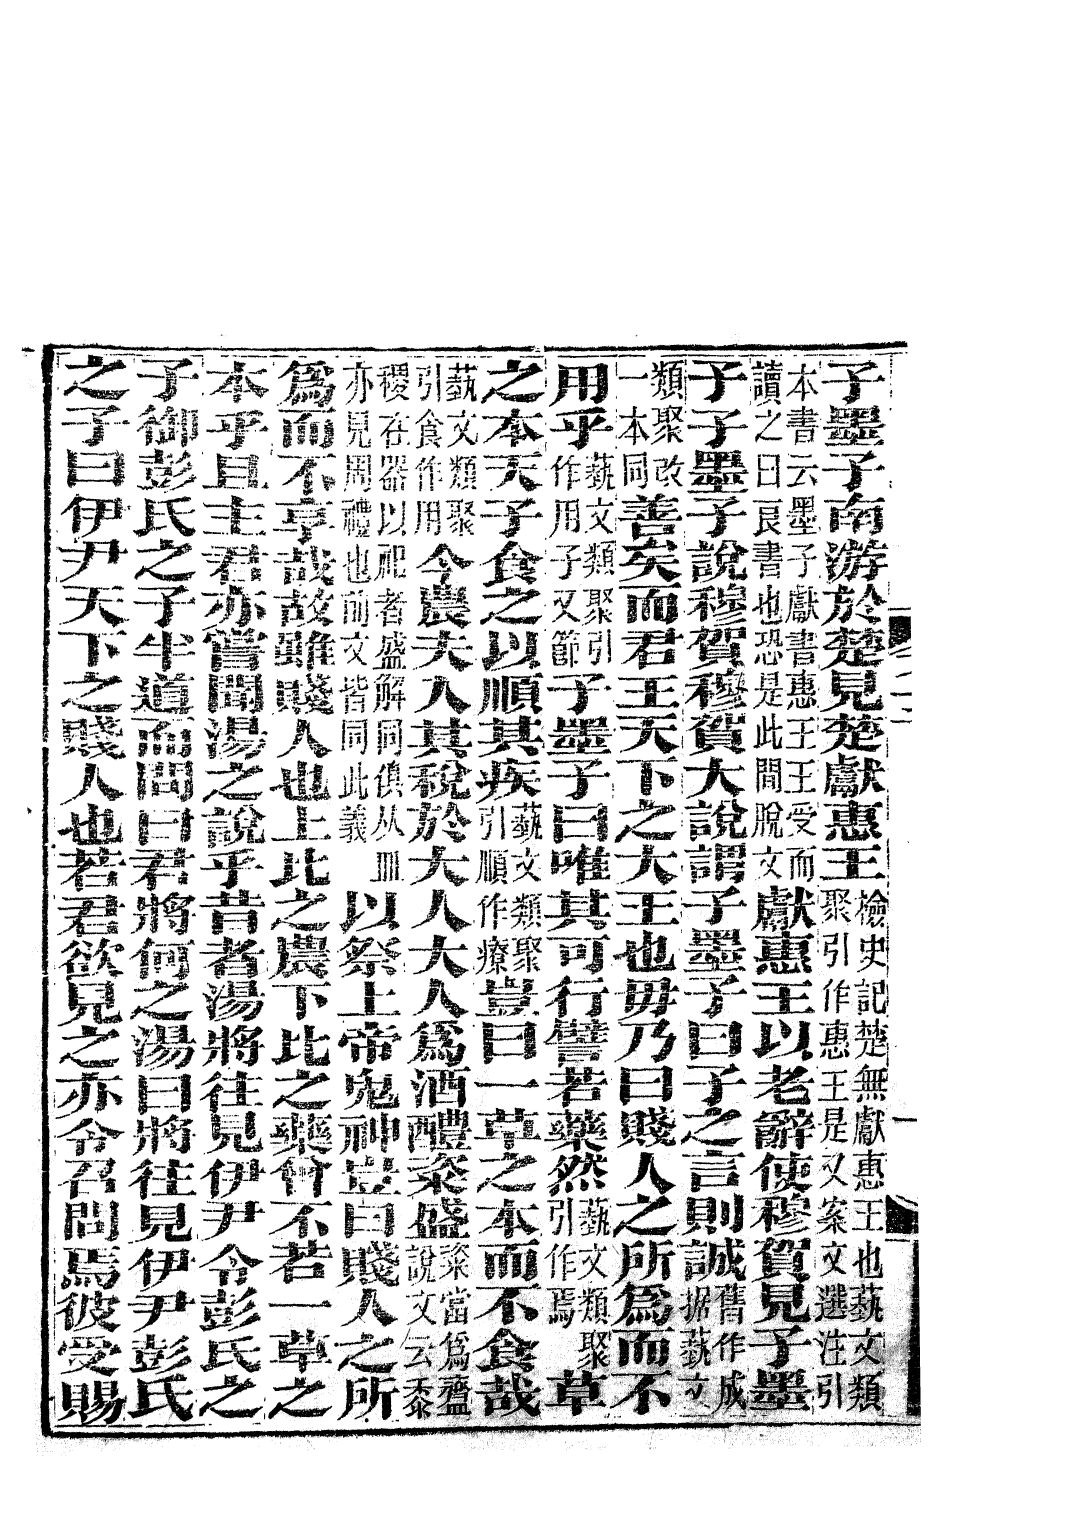 子墨子南游於楚見楚獻惠王檢史記楚無獻惠王也藝文類聚引作惠王是又案文選注引
本書云墨子獻書惠王王受而讀之曰良書也恐是此間脫文獻惠王以老辭使穆賀見子墨
子子墨子說穆賀穆賀大說謂子墨子曰子之言則誠舊作成據藝文
類聚改一本同善矣而君王天下之大王也毋乃曰賤人之所爲而不
用乎藝文類聚引作用子又節子墨子曰唯其可行譬若藥然藝文類聚引作焉草
之本天子食之以順其疾藝文類聚引順作療豈曰一草之本而不食哉
藝文類聚引食作用今農夫入其稅於大人大人爲酒醴粢盛粢當爲齍說文云黍
稷在器以祀者盛解同俱从皿亦見周禮也前文皆同此義以祭上帝鬼神豈曰賤人之所
爲而不享哉故雖賤人也上比之農下比之藥曾不若一草之
本乎且主君亦嘗聞湯之說乎昔者湯將往見伊尹令彭氏之
子御彭氏之子半道而問曰君將何之湯曰將往見伊尹彭氏
之子曰伊尹天下之賤人也若君欲見之亦令召問焉彼受賜